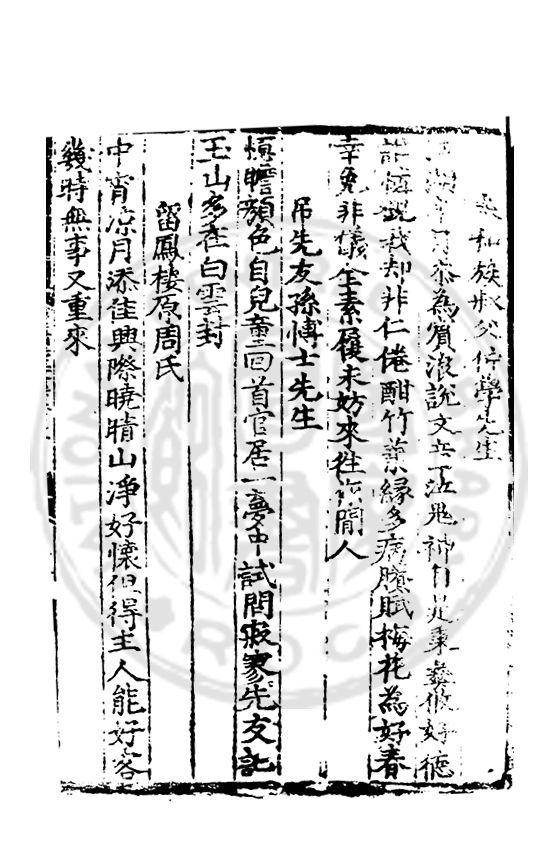 和族叔父修學先生
為貧浪說文 泣鬼神 是秉彝攸好德
誰 我却非仁倦酣竹葉緣多病賸賦梅花為好春
幸免非儀全素履未妨來往 閒人
吊先友孫博士先生
慣瞻顏色自兒童回首官居一夢中試問寂寥先友記
玉山多在白雲封
留鳳樓原周氏
中宵凉月添佳興際曉晴山淨好懷但得主人能好客
幾時無事又重來